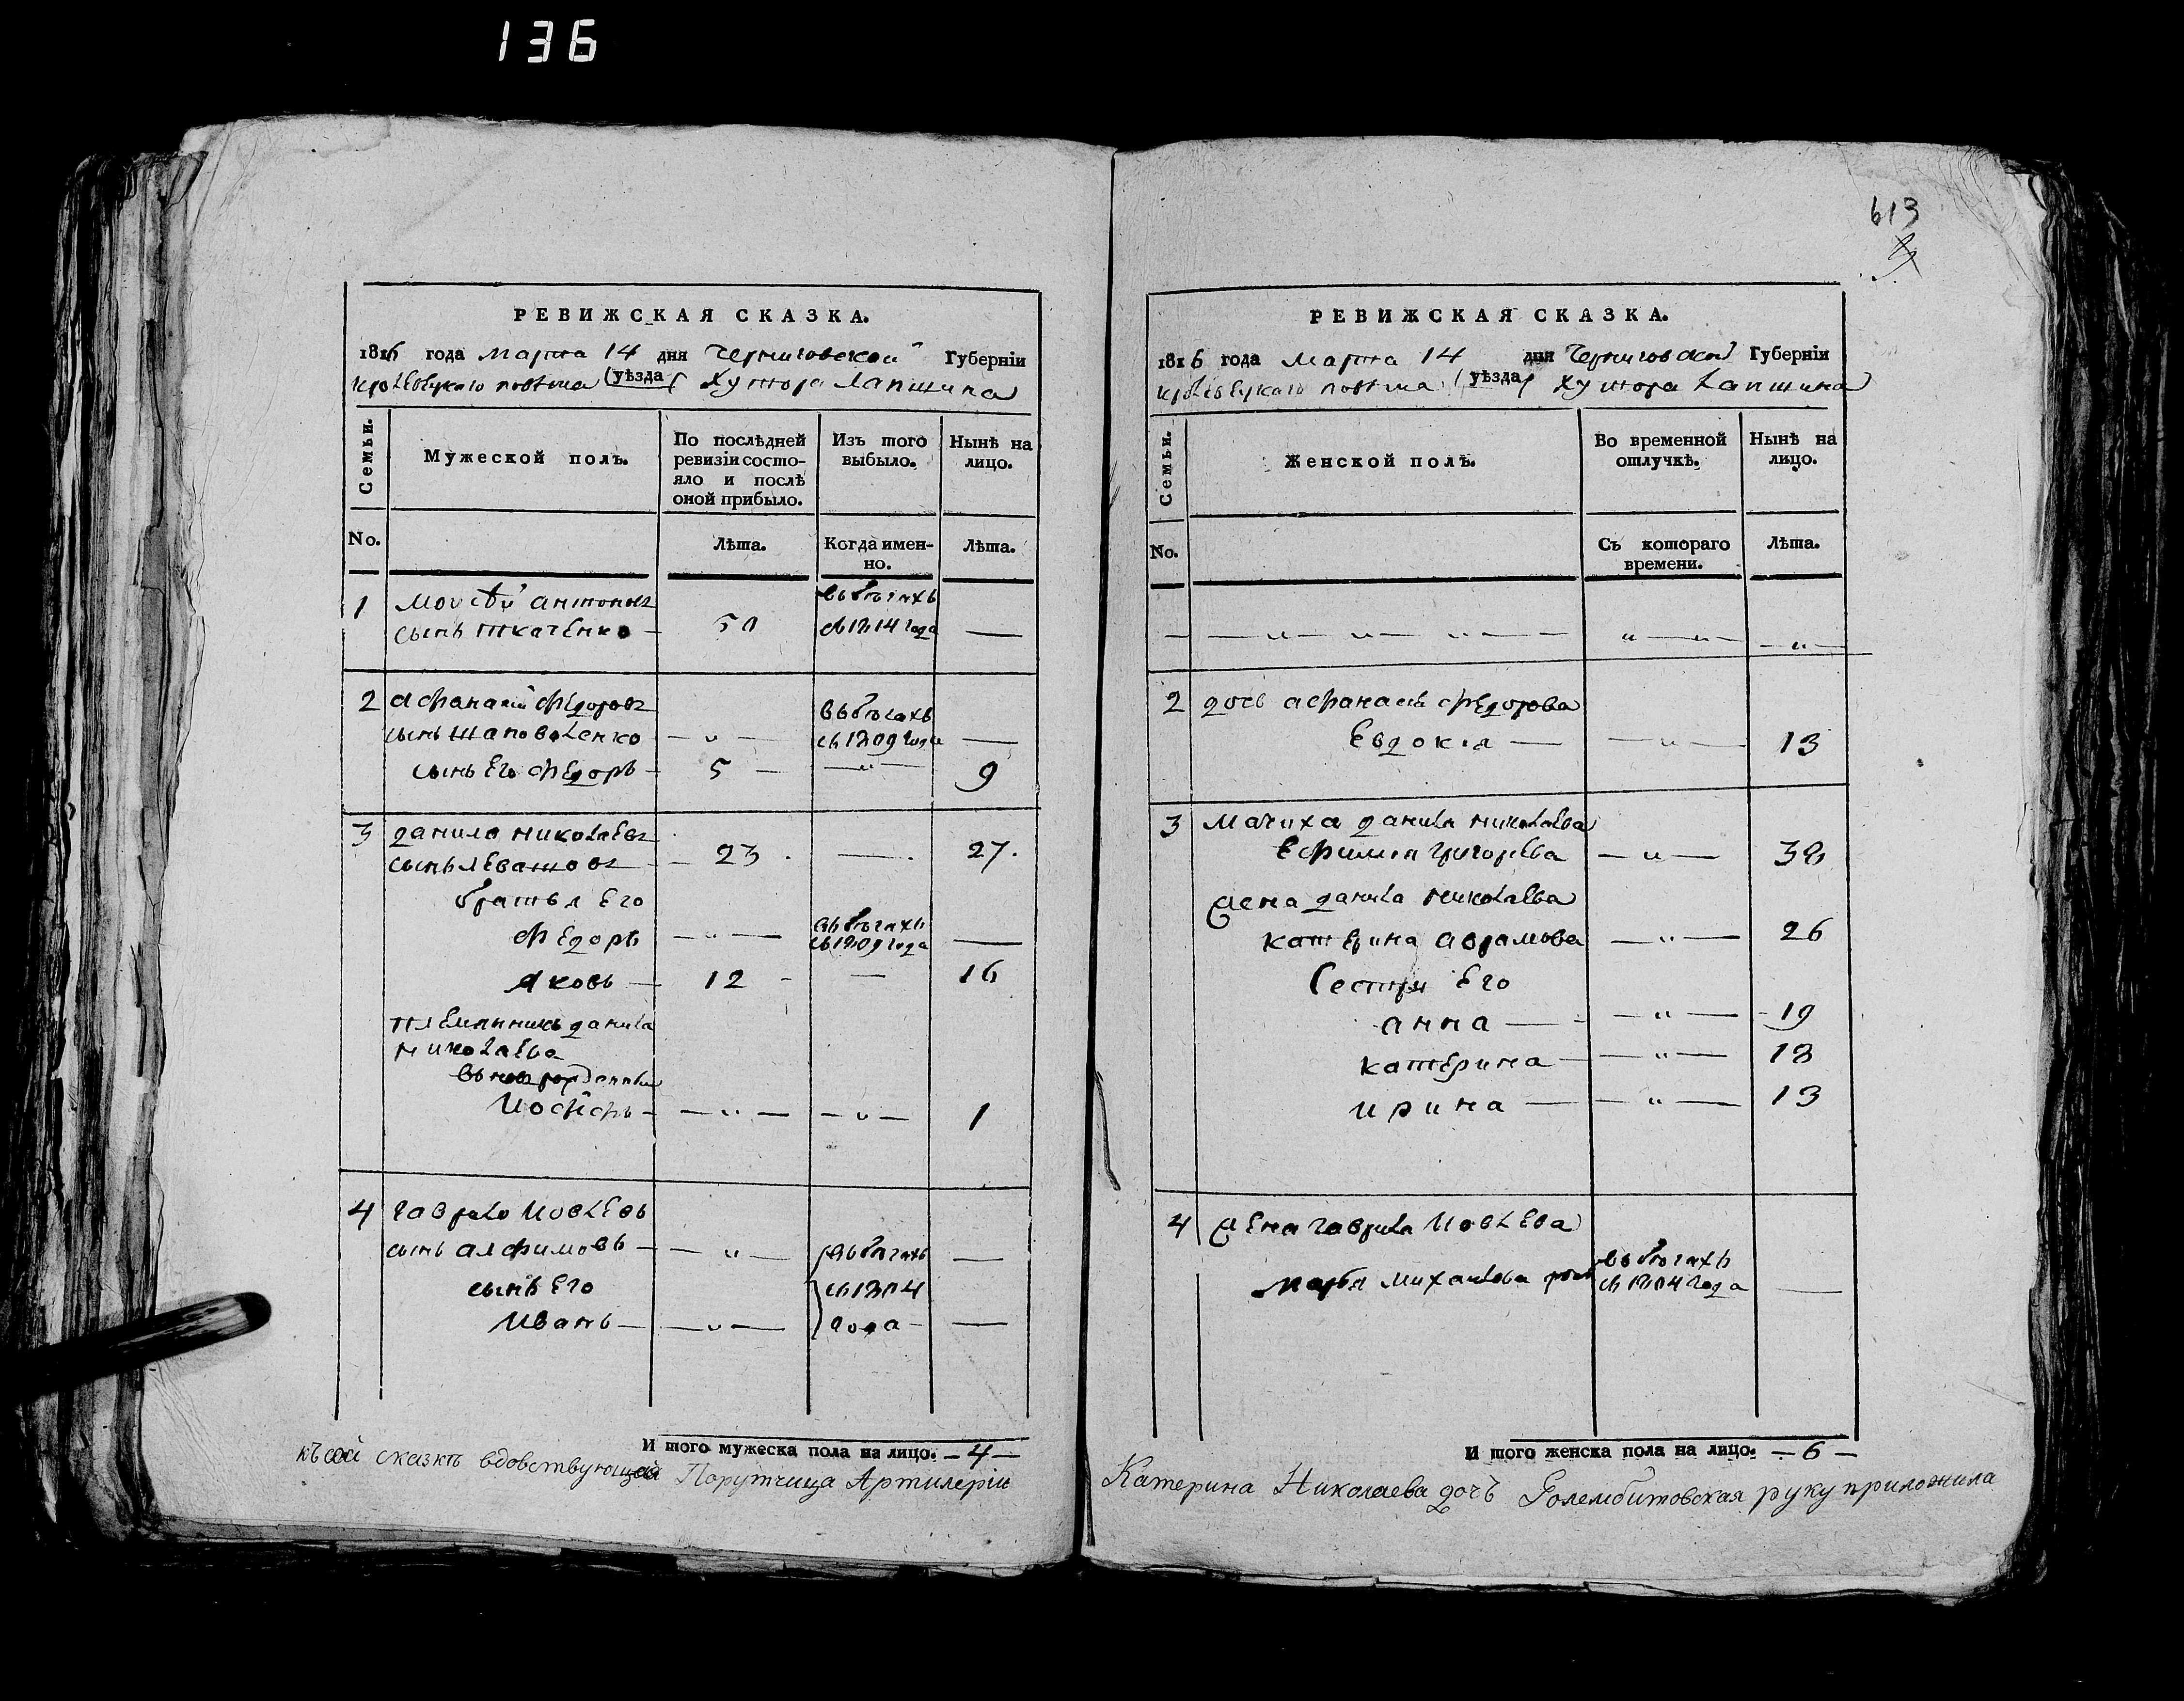 136
613
РЕВИЖСКАЯ СКАЗКА.
1816 года марта 14 дня Черниговской Губерніи
кролевецкаго повѣта (уѣзда) Хутора Лапшина
Семьи.
Мужеской полъ.
По послѣдней ревизіи состояло и послѣ оной прибыло.
Изъ того выбыло.
Нынѣ на лицо.
No.
Лѣта.
Когда именно.
Лѣта.
1 Моисѣй антоновъ
сынъ ткаченко — 51 въ бѣгахъ съ 1814 года —
2 афанасий федоровъ
сынъ шаповаленко — „ — въ бѣгахъ съ 1809 года —
сынъ его федоръ — 5 — — „ — 9
3 данило николаевъ
сынъ левашовъ — 23 — 27.
братья его
федоръ — „ — въ бѣгахъ съ 1809 года —
яковъ — 12 — — 16
племянникъ данила
николаева
вновь рожденный
Иосифъ — — „ — — „ — 1
4 гаврило Иовлевъ
сынъ алфимовъ — — „ — въ бѣгахъ —
сынъ его съ 1804
Иванъ — — „ — года — —
И того мужеска пола на лицо. — 4 —
къ сей сказкѣ вдовствующая Порутчица Артилеріи
РЕВИЖСКАЯ СКАЗКА.
1816 года марта 14 дня Черниговской Губерніи
кролевецкаго повѣта (уѣзда) Хутора Лапшина
Семьи.
Женской полъ.
Во временной отлучкѣ.
Нынѣ на лицо.
No.
Съ котораго времени.
Лѣта.
— — „ — „ — „ — — „ — „ — — „ —
2 дочь афанасія федорова
Евдокія — — „ — 13
3 Мачиха данила николаева
Ефимия григорьева — „ — 38
жена данила николаева
катерина аврамова — „ — 26
Сестры его
анна — — „ — 19
катерина — — „ — 18
ирина — — „ — 13
4 жена гаврила Иовлева
марья михайлова въ бѣгахъ съ 1804 года —
И того женска пола на лицо. — 6 —
Катерина Николаева дочъ Голембитовская руку приложила